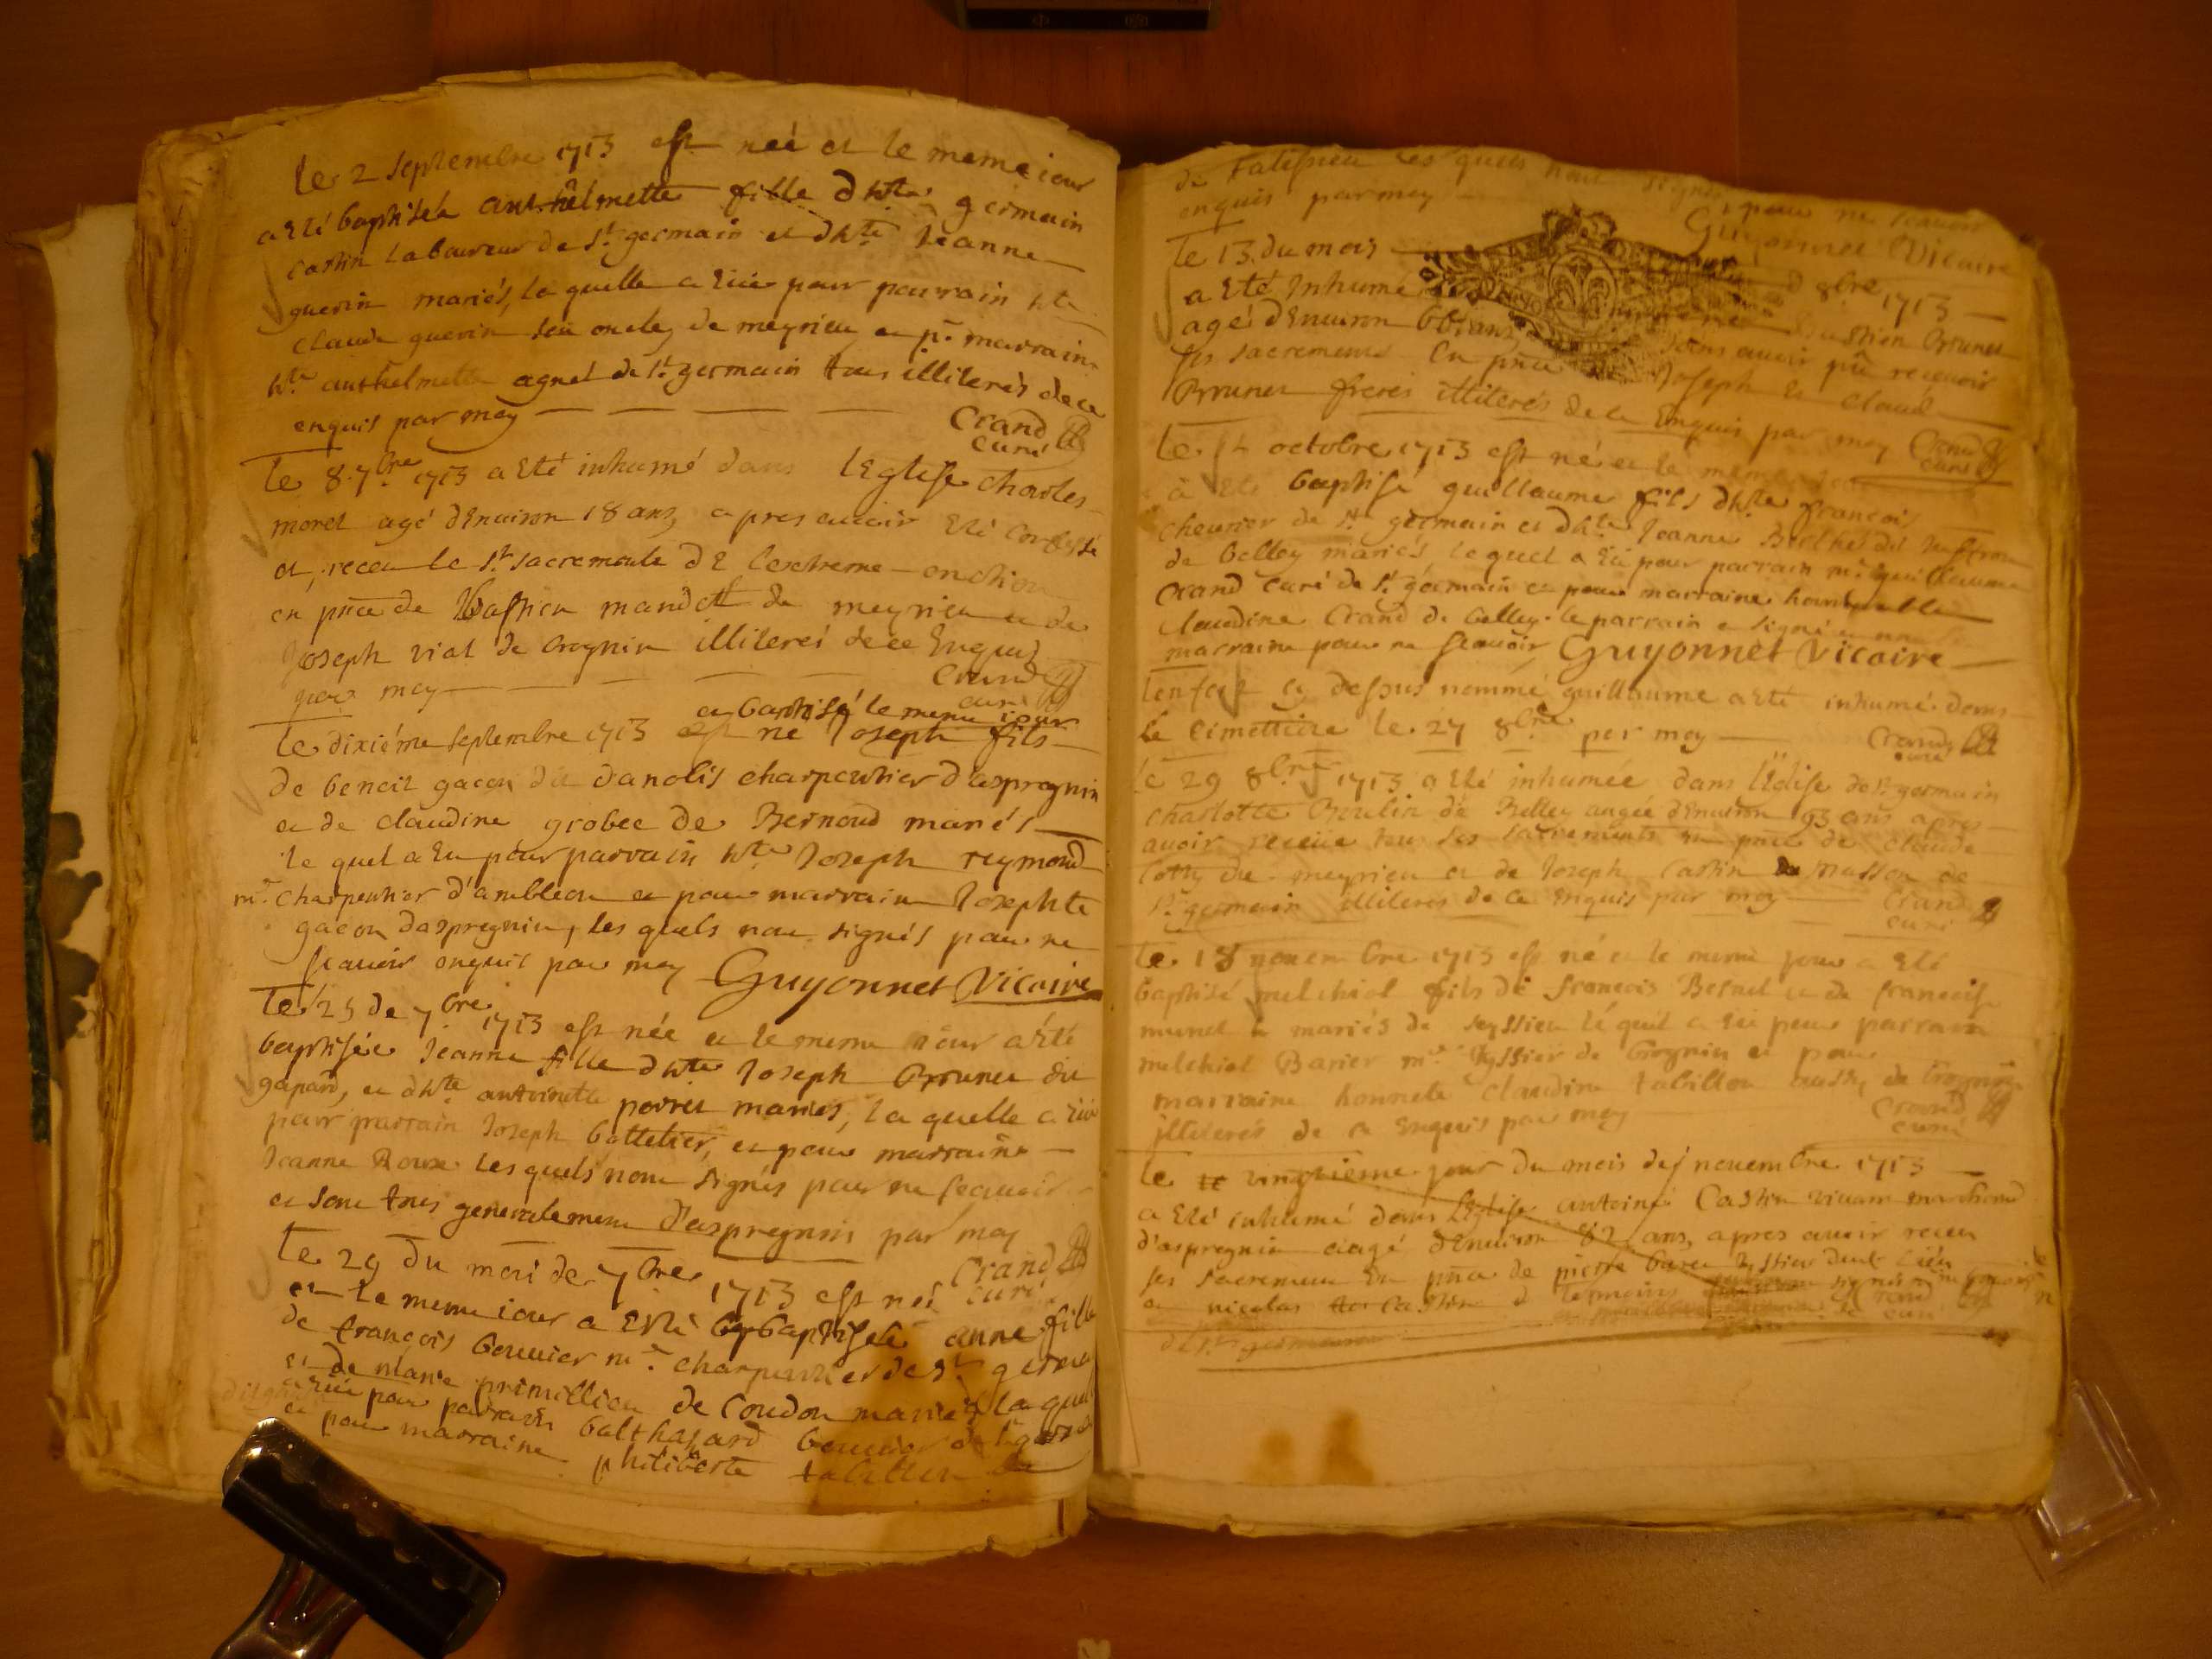 le 2 septembre 1713 est neé et le meme iour
a eté baptiseé anthelmette fille d'hte germain
castin laboureur de st germain et d'hte Jeanne
guerin mariés, la quelle a eüe pour parrain hte
claude guerin son oncle, de meyrieu et pr marraine
hte anthelmette agnet de st germain tous illiterés de ce
enquis par moy
Crand
curé
le 8. 7bre 1713 a eté inhumé dans l'Eglise charles
moret agé d'Enuiron 18 ans, apres auoir Eté confessé
et receu le st sacrements de l'extreme onction
en pnce de mandet de meyrieu et de
Joseph vial de crognin illiterés de ce Enquis
par moy
Crand
curé
et baptisé le meme iour
le dixiéme septembre 1713 est né Joseph fils
de benoit gacon dit danolis charpentier d'aspregnin
et de claudine grobee de Bernoud mariés
le quel a eu pour parrain hte Joseph reymond
mre charpentier d'ambleon et pour marraine Josephte
gacon d'aspregnin, les quels nont signés pour ne
scauoir enquis par moy Guyonnet Vicaire
le 25 de 7bre 1713 est née et le meme iour a eté
baptiseé Jeanne fille d'hte Joseph Brunet du
gapard, et d'hte antoinette perret mariés, la quelle a eüe
pour parrain Joseph battelier, et pour marraine
Jeanne Roux les quels nont signés pour ne scauoir
et sont tous generalement d'aspregnin par moy
Crand
curé
le 29 du moi de 7bre 1713 est neé
et le meme iour a eté baptiseé anne fille
de françois bouuier mre charpentier de st germain
et de marie primillieu de Coudon mariés la quelle
a eüe pour parrain balthasard bouuier de st germain
et pour marraine philiberte tabillon
de talissieu les quels nont signés pour ne scauoir
enquis par moy Guyonnet Vicaire
le 13 du mois d'8bre 1713
a eté Inhumé Brunet
agé d'Enuiron 66 ans, sans auoir pû receuoir
ses sacrements En pnce Joseph et claude
Brunet freres illiterés de ce Enquis par moy Crand
curé
le octobre 1713 est né et le meme iour
a eté baptisé guillaume fils d'hte françois
cheurier de st germain et d'hte Jeanne
de belley mariés le quel a eü pour parrain mre guillaume
Crand curé de st germain et pour marraine honorable
claudine Crand de belley. le parrain a signé et non la
marraine pour ne scauoir Guyonnet Vicaire
l'enfant cy dessus nommé guillaume a eté inhumé dans
le cimettiere le 27 8bre par moy Crand
curé
le 29 8bre 1713 a eté inhumée dans l'Eglise de st germain
charlotte Boulin de Belley aagée d'Enuiron 93 ans apres
auoir receüe tous ses sacrements en pnce de claude
cotty de meyrieu et de Joseph castin masson de
st germain illiterés de ce enquis par moy Crand
curé
le 18 nouembre 1713 est né et le meme jour a eté
baptisé melchiol fils de françois Besnet et de françoise
munet mariés de seyssieu le quel a eü pour parrain
melchiol Barier mre tyssier de Crognin et pour
marraine honnete claudine tabillon aussy de Crognin
illiterés de ce enquis par moy Crand
curé
le vingtieme jour du mois de nouembre 1713
a eté inhumé dans l'Eglise antoine Castin viuant marchand
d'aspregnin aagé d'Enuiron 82 ans, apres auoir receu
ses sacrements En pnce de pierre tyssier dudt lieu
et nicolas castin
Crand
curé
de st germain